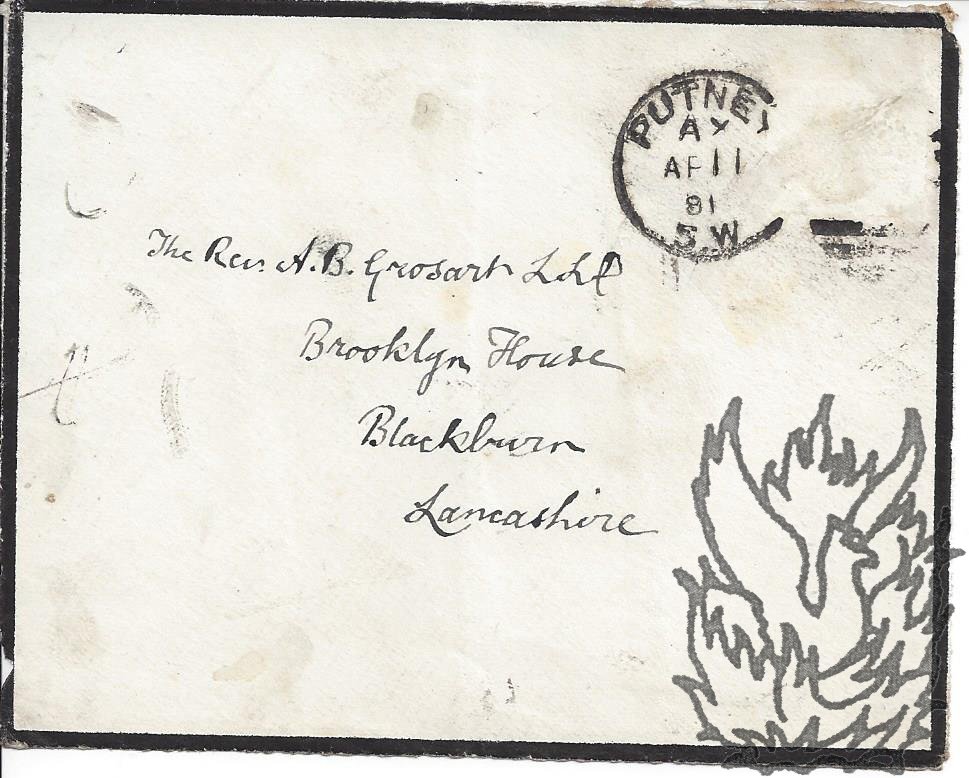 PUTNEY
AX
AP 11
81
S.W
The Rev. A.B. Grosart LLD
Brooklyn House
Blackburn
Lancashire